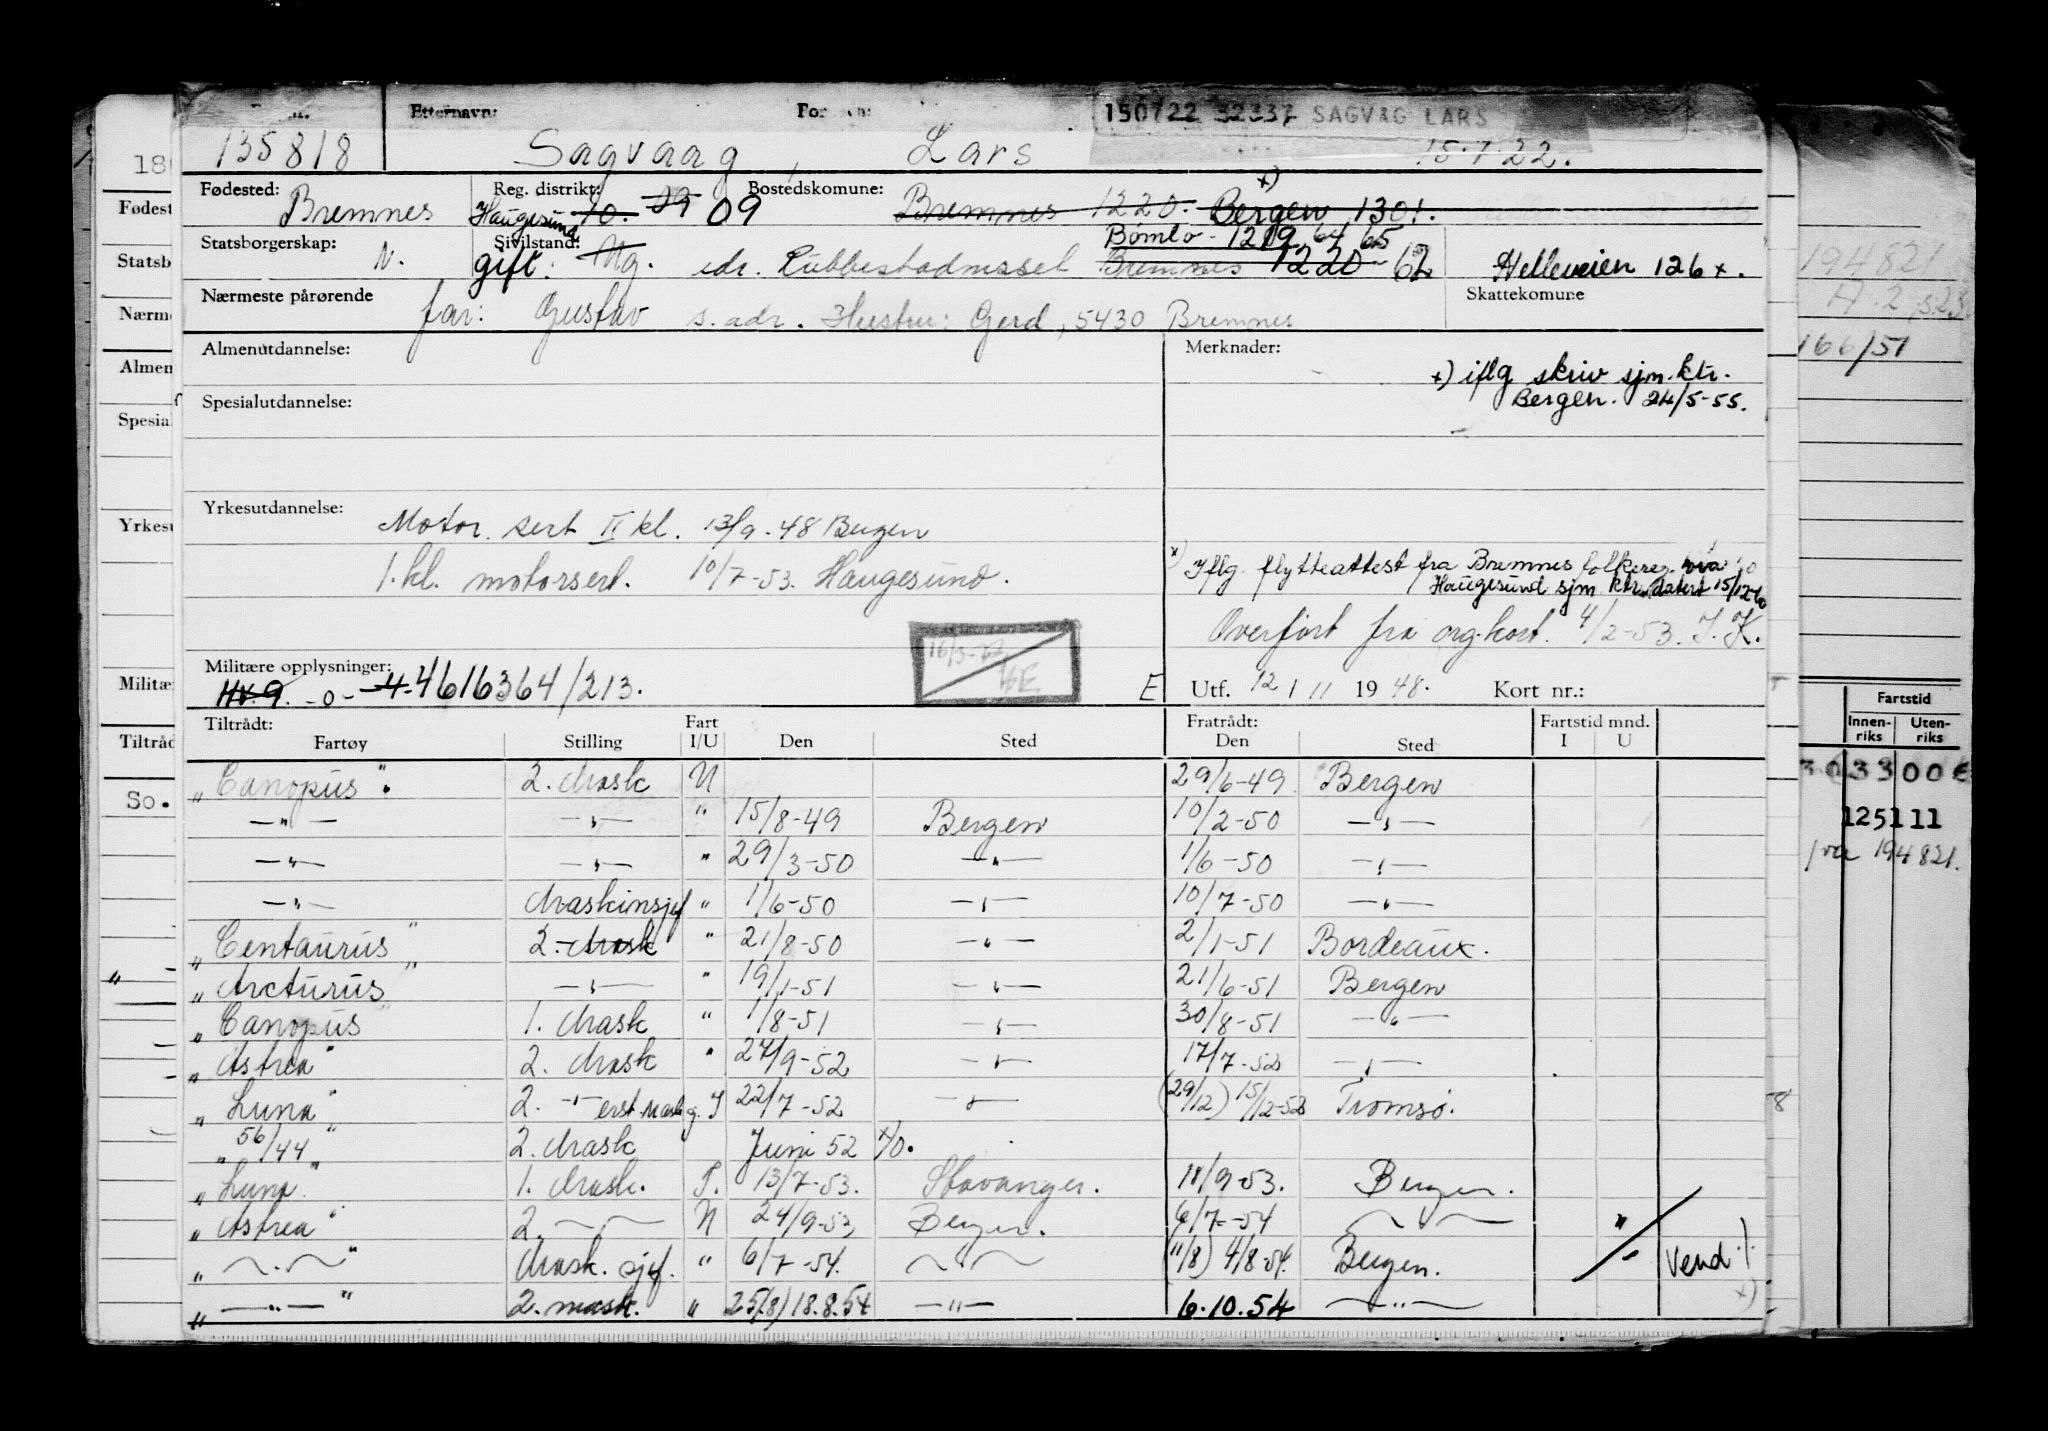 Etternavn: 150722 32337 SAGVAG LARS
135818 Sagvaag, Lars 15.7.22.
Fødested: Reg. distrikt: Bostedskomune: x)
Bremnes Haugesund 10. 09 Bremnes 1220. Bergen 1301.
Statsborgerskap: Sivilstand: Bømlo - 1219 64 65
N. gift. Ug. adr. Rubbestadnessel Bremnes 1220 - 62 Helleveien 126 x.
Nærmeste pårørende Skattekomune
far: Gustav s. adr. Hustru: Gerd, 5430 Bremnes
Almenutdannelse: Merknader:
x) iflg skriv sjm. ktr.
Bergen. 24/5-55.
Spesialutdannelse:
Yrkesutdannelse:
Motor. sert II kl. 13/9-48 Bergen
1. kl. motorsert. 10/7-53. Haugesund.
x) Iflg. flytteattest fra Bremnes folkereg. via
Haugesund sjm. ktr. datert 15/12-60
Overført fra org. kort. 4/2-53. J. K.
Militære opplysninger:
HV. 9. -0- 4. 4616364/213.
E Utf. 12/11 1948. Kort nr.:
Tiltrådt: Fart Fratrådt: Fartstid mnd.
Fartøy Stilling I/U Den Sted Den Sted I U
"Canopus". 2. Mask U 29/6-49 Bergen
—"— —"— " 15/8-49 Bergen 10/2-50 —"—
—"— —"— " 29/3-50 —"— 1/6-50 —"—
—"— Maskinsjef " 1/6-50 —"— 10/7-50 —"—
"Centaurus" 2. Mask " 21/8-50 —"— 2/1-51 Bordeaux.
"Arcturus" —"— " 19/1-51 —"— 21/6-51 Bergen
"Canopus" 1. Mask " 1/8-51 —"— 30/8-51 —"—
"Astrea" 2. Mask " 27/9-52 —"— 17/7-52 —"—
"Luna" 2. —"— I 22/7-52 —"— (29/12) 15/12-52 Tromsø.
"56/44" 2. Mask Juni 52 x/o.
"Luna" 1. Mask. I. 13/7-53. Stavanger. 18/9-53. Bergen.
"Astrea" 2. —"— U 24/9-53, Bergen. 6/7-54 —"—
"—"—" Mask. sjef. " 6/7-54. —"— (11/8) 4/8-54. Bergen. Vend ./.
"—"—" 2. mask. " 25/8) 18.8.54 —"— 6.10.54 —"— x)
Fødest
Statsb
Nærm
Almen
Spesial
Yrkesu
Militæ
Tiltråd
So.
194821
166/51
Fartstid
Innen-riks Uten-riks
125111
194821.